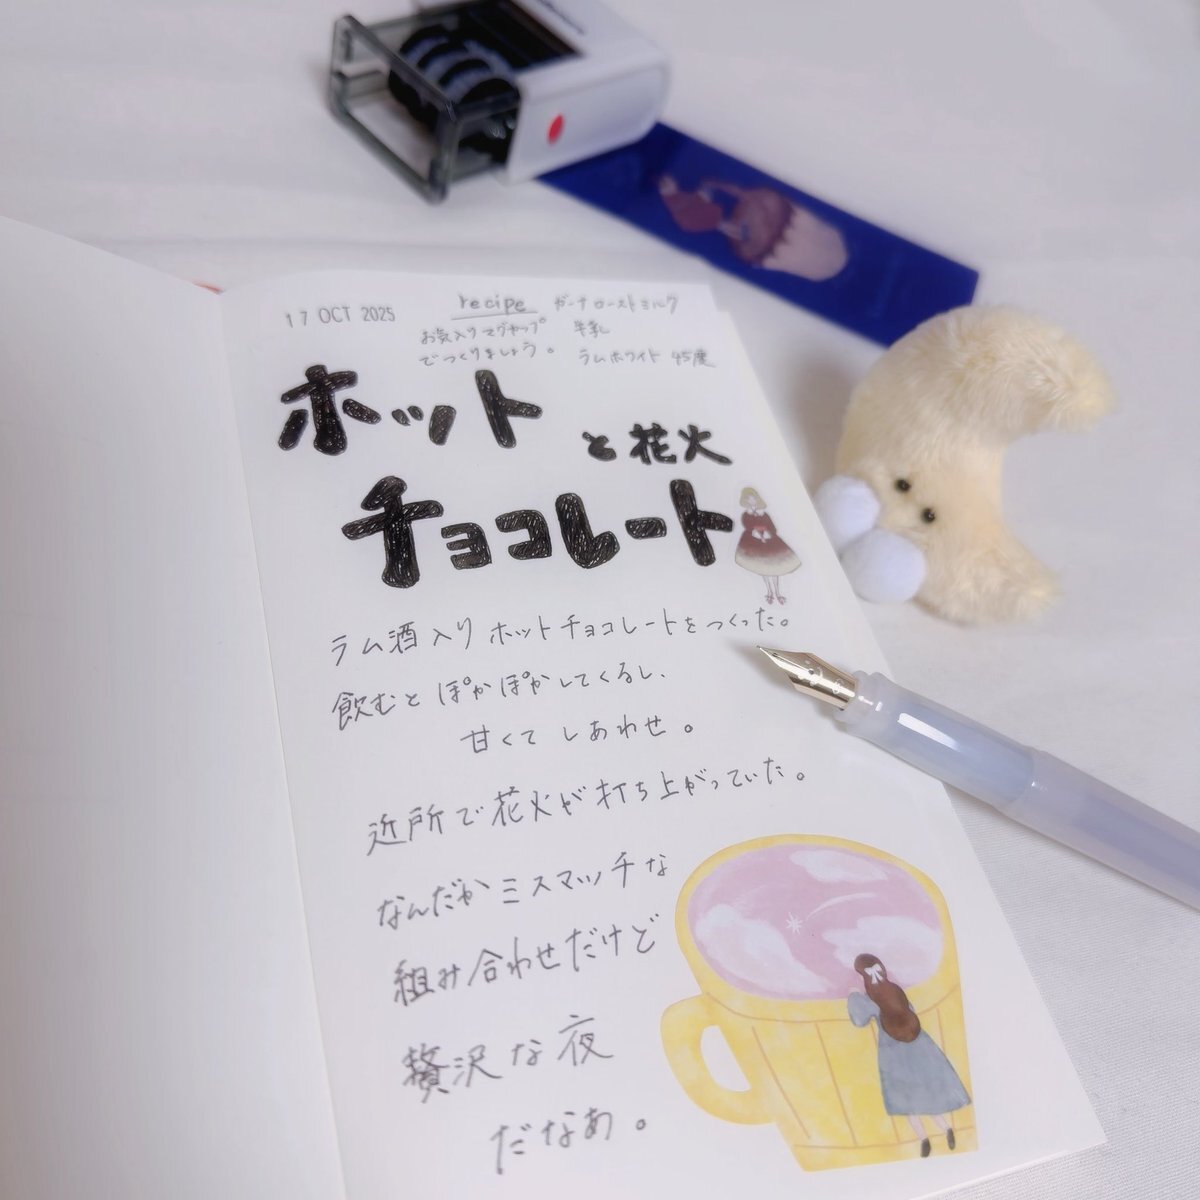 17 OCT 2025
recipe
お気入りマグカップ
でつくりましょう。
ガーナローストミルク
牛乳
ラムホワイト 45度
ホット
と花火
チョコレート
ラム酒入りホットチョコレートをつくった。
飲むとぽかぽかしてくるし、
甘くてしあわせ。
近所で花火が打ち上がっていた。
なんだかミスマッチな
組み合わせだけど
贅沢な夜
だなあ。